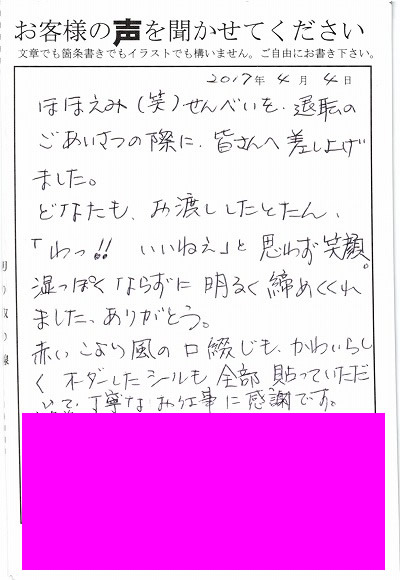 お客様の声を聞かせてください
文章でも箇条書きでもイラストでも構いません。ご自由にお書き下さい。
2017年 4月 4日
ほほえみ(笑)せんべいを、退職の
ごあいさつの際に、皆さんへ差し上げ
ました。
どなたも、お渡ししたとたん、
「わっ!! いいねぇ」と思わず笑顔。
湿っぽくならずに明るく締めくくれ
ました、ありがとう。
赤いこより風の口綴じも、かわいらし
く オーダーしたシールも全部貼っていただ
いて、丁寧なお仕事に感謝です。
切り取り線